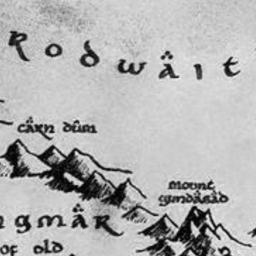 Rodwäit
cärn dûm
mount
gundäbäd
ngmär
of old